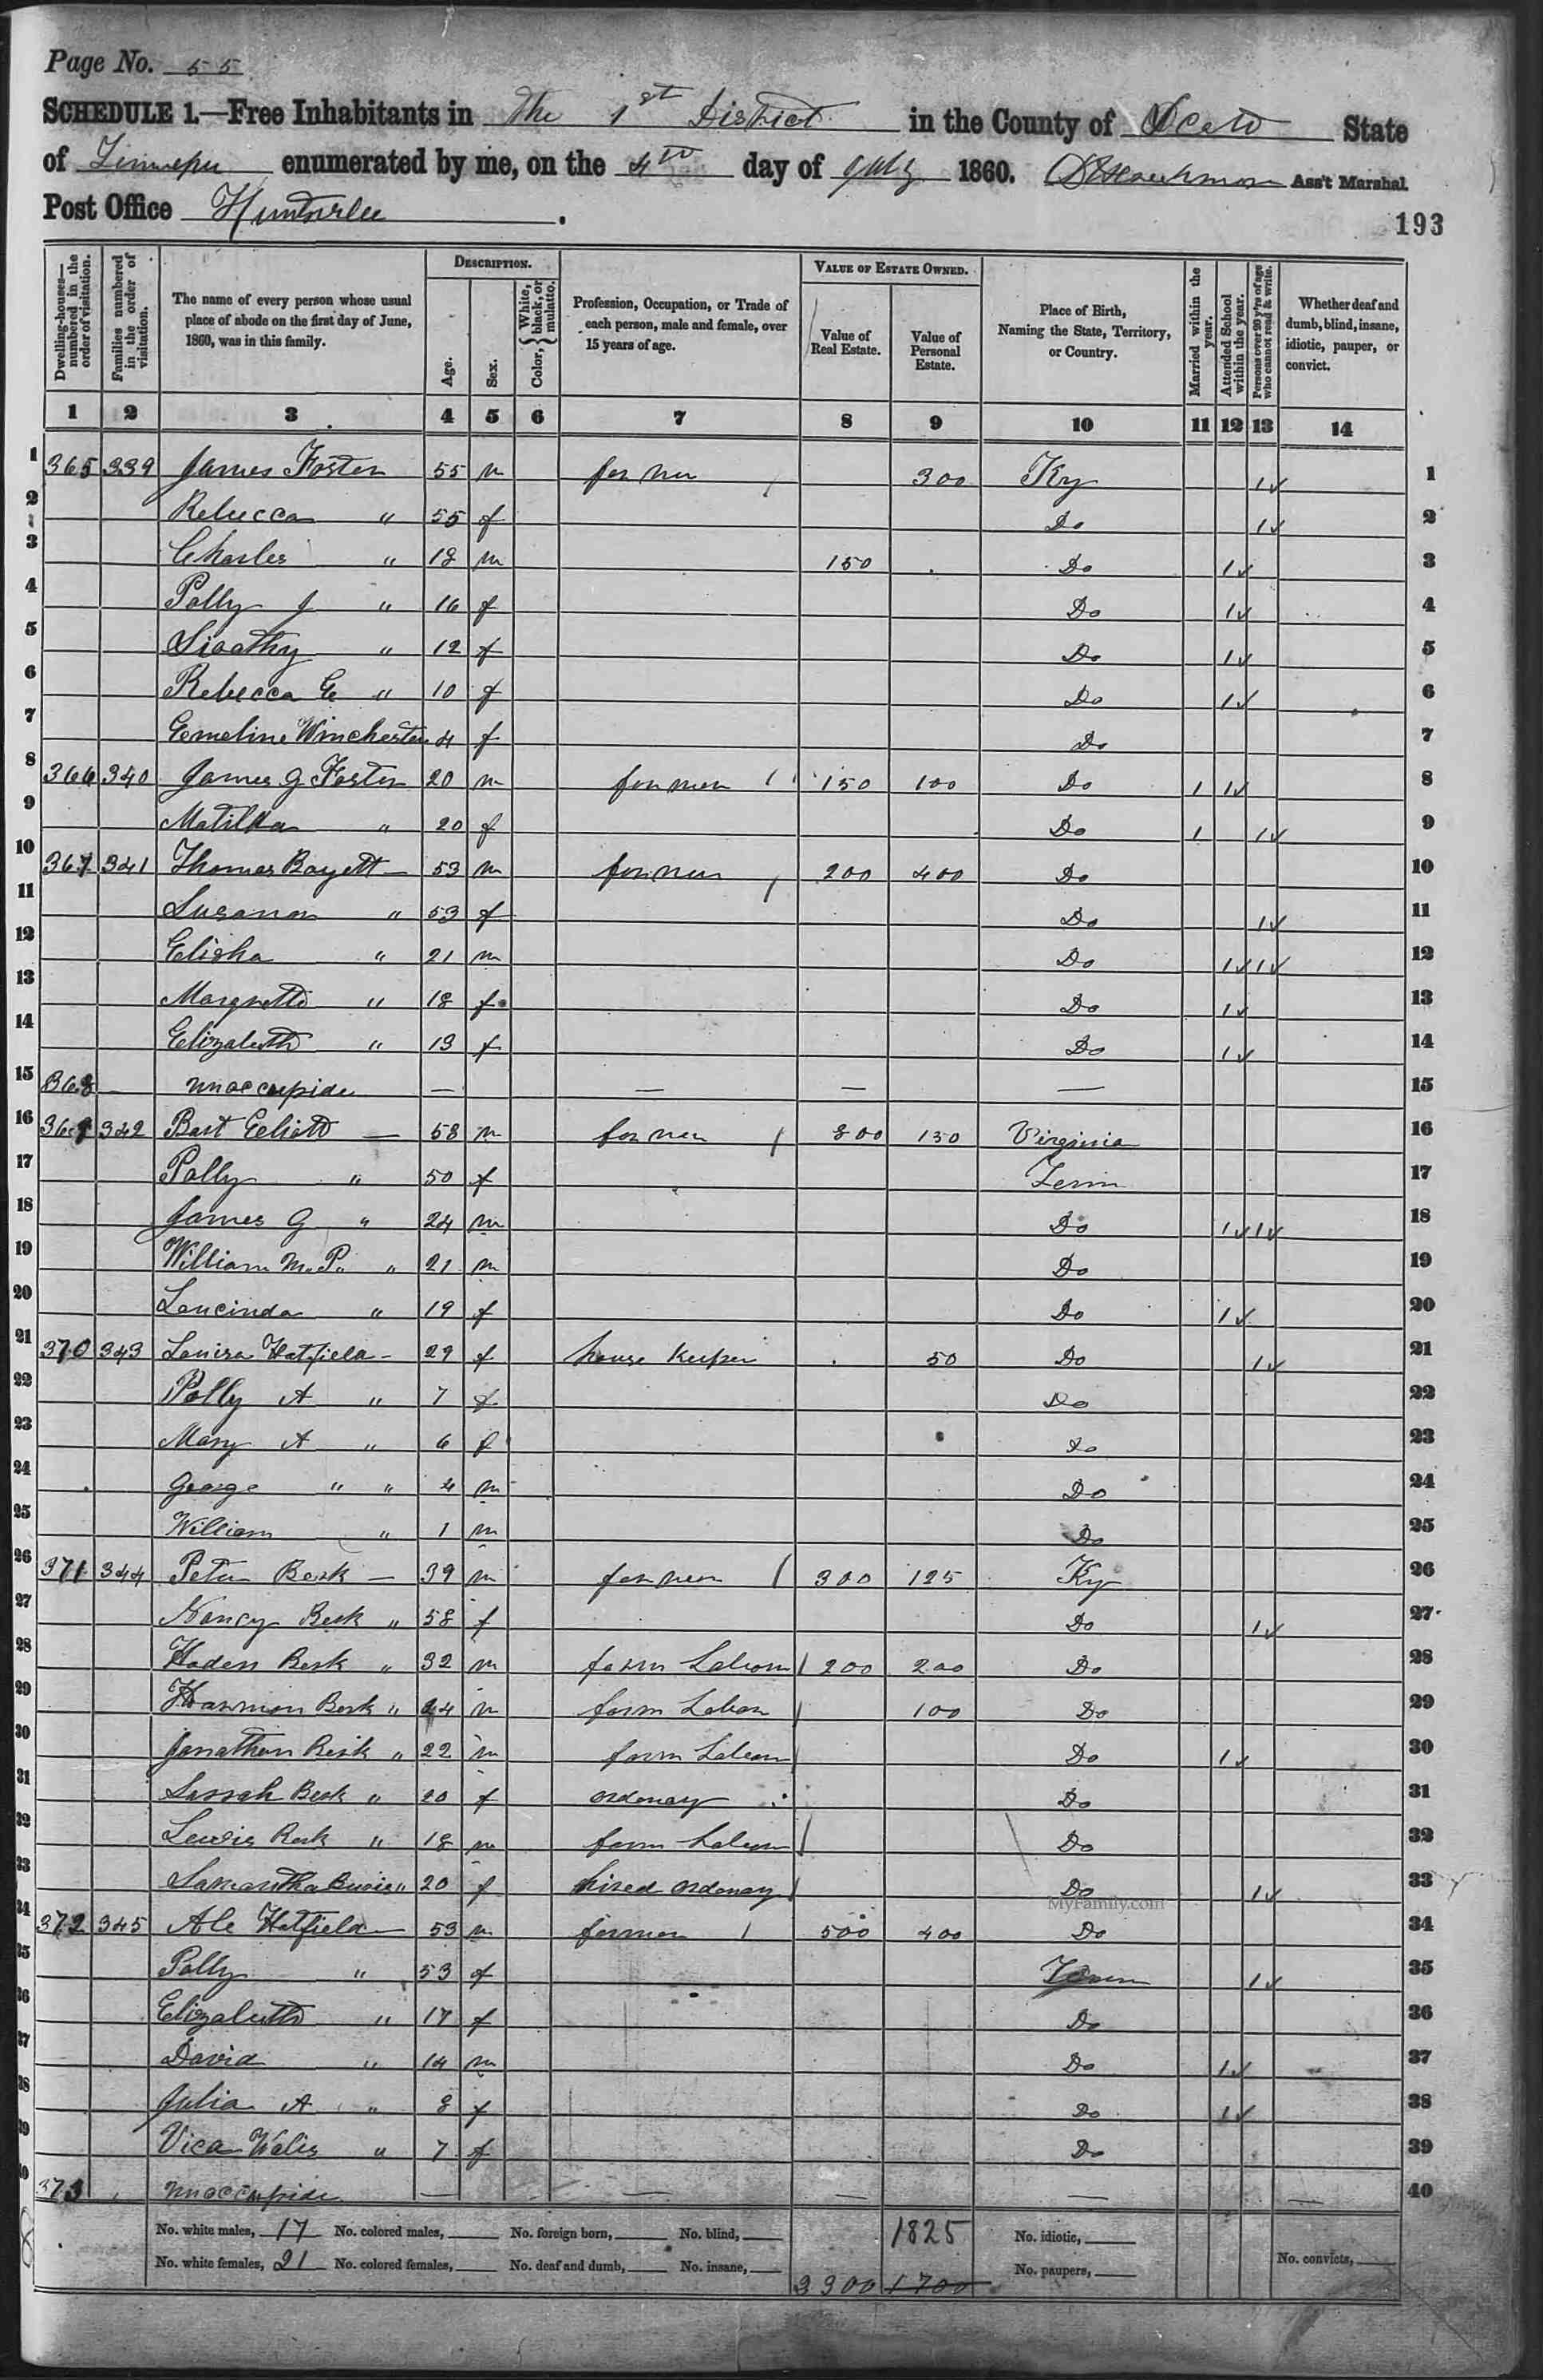 Page No. 55
SCHEDULE 1.—Free Inhabitants in The 1st District in the County of Scott State
of enumerated by me, on the 4th day of July 1860. Ass't Marshal.
Post Office
193
Dwelling-houses—numbered in the order of visitation.
Families numbered in the order of visitation.
The name of every person whose usual place of abode on the first day of June, 1860, was in this family.
DESCRIPTION.
Age.
Sex.
Color, { White, black, or mulatto.
Profession, Occupation, or Trade of each person, male and female, over 15 years of age.
VALUE OF ESTATE OWNED.
Value of Real Estate.
Value of Personal Estate.
Place of Birth, Naming the State, Territory, or Country.
Married within the year.
Attended School within the year.
Persons over 20 y'rs of age who cannot read & write.
Whether deaf and dumb, blind, insane, idiotic, pauper, or convict.
1 2 3 4 5 6 7 8 9 10 11 12 13 14
1 365 339 James Foster 55 m farmer / 300 Ky 1✓ 1
2 Rebecca " 55 f Do 1✓ 2
3 Charles " 18 m 150 Do 1✓ 3
4 Polly J " 16 f Do 1✓ 4
5 " 12 f Do 1✓ 5
6 Rebecca E " 10 f Do 1✓ 6
7 Emeline Winchester 4 f Do 7
8 366 340 James G Foster 20 m farmer / 150 100 Do 1 1✓ 8
9 Matilda " 20 f Do 1 1✓ 9
10 367 341 Thomas 53 m farmer / 200 400 Do 10
11 Susanna " 53 f Do 1✓ 11
12 Elisha " 21 m Do 1✓ 1✓ 12
13 " 18 f Do 1✓ 13
14 Elizabeth " 13 f Do 1✓ 14
15 368 — unoccupide — — — — 15
16 369 342 — 58 m farmer / 800 150 Virginia 16
17 Polly " 50 f Tenn 17
18 James G " 24 m Do 1✓ 1✓ 18
19 William M. P. " 21 m Do 19
20 Loucinda " 19 f Do 1✓ 20
21 370 343 Louisa Hatfield — 29 f house keeper 50 Do 1✓ 21
22 Polly A " 7 f Do 22
23 Mary A " 6 f Do 23
24 George " " 4 m Do 24
25 William " 1 m Do 25
26 371 344 Peter Besk — 39 m farmer / 300 125 Ky 26
27 Nancy Besk " 58 f Do 1✓ 27
28 Haden Besk " 32 m farm Labour / 200 200 Do 28
29 Harmon Besk " 24 m farm Labour / 100 Do 29
30 Jonathan Besk " 22 m farm Labour / Do 1✓ 30
31 Sarrah Besk " 20 f ordonary Do 31
32 Lewis Besk " 18 m farm Labour / Do 32
33 Samantha " 20 f hired ordonary / Do 1✓ 33
MyFamily.com
34 372 345 Ale Hatfield — 53 m farmer / 500 400 Do 34
35 Polly " 53 f Tenn 1✓ 35
36 Elizabeth " 17 f Do 36
37 David " 14 m Do 1✓ 37
38 Julia A " 8 f Do 1✓ 38
39 Vica " 7 f Do 39
40 373 unoccupide — — — — 40
No. white males, 17 No. colored males, No. foreign born, No. blind, 1825 No. idiotic,
No. white females, 21 No. colored females, No. deaf and dumb, No. insane, 3300 1700 No. paupers, No. convicts,